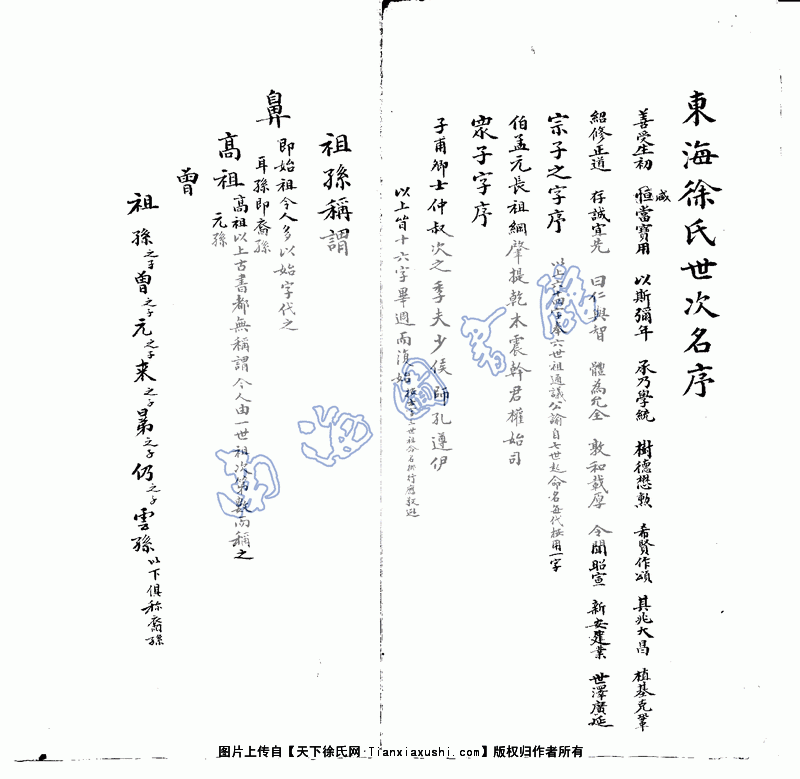 東海徐氏世次名序
善受生初 恒當寶用 以斯彌年 承乃學統 樹德懋勲 希賢作頌 其兆大昌 植基克鞏
咸
紹修正道 存誠宜先 曰仁與智 體為允全 敦和載厚 令聞昭宣 新安建業 世澤廣延
宗子之字序
以上六十四字奉六世祖通議公諭自七世起命名每代按用一字
伯孟元長祖綱肇提乾木震幹君權始司
眾子字序
子甫卿士仲叔次之季夫少侯師孔遵伊
以上皆十六字畢週而復始
祖孫稱謂
鼻
即始祖令人多以始字代之
耳孫即裔孫
高祖
高祖以上古書都無稱謂今人由一世祖次第數而稱之
元孫
曾
祖
孫之子曾之子元之子来之子晜之子仍之子雲孫
以下俱称裔孫
图片上传自【天下徐氏网·Tianxiaxushi.com】版权归作者所有